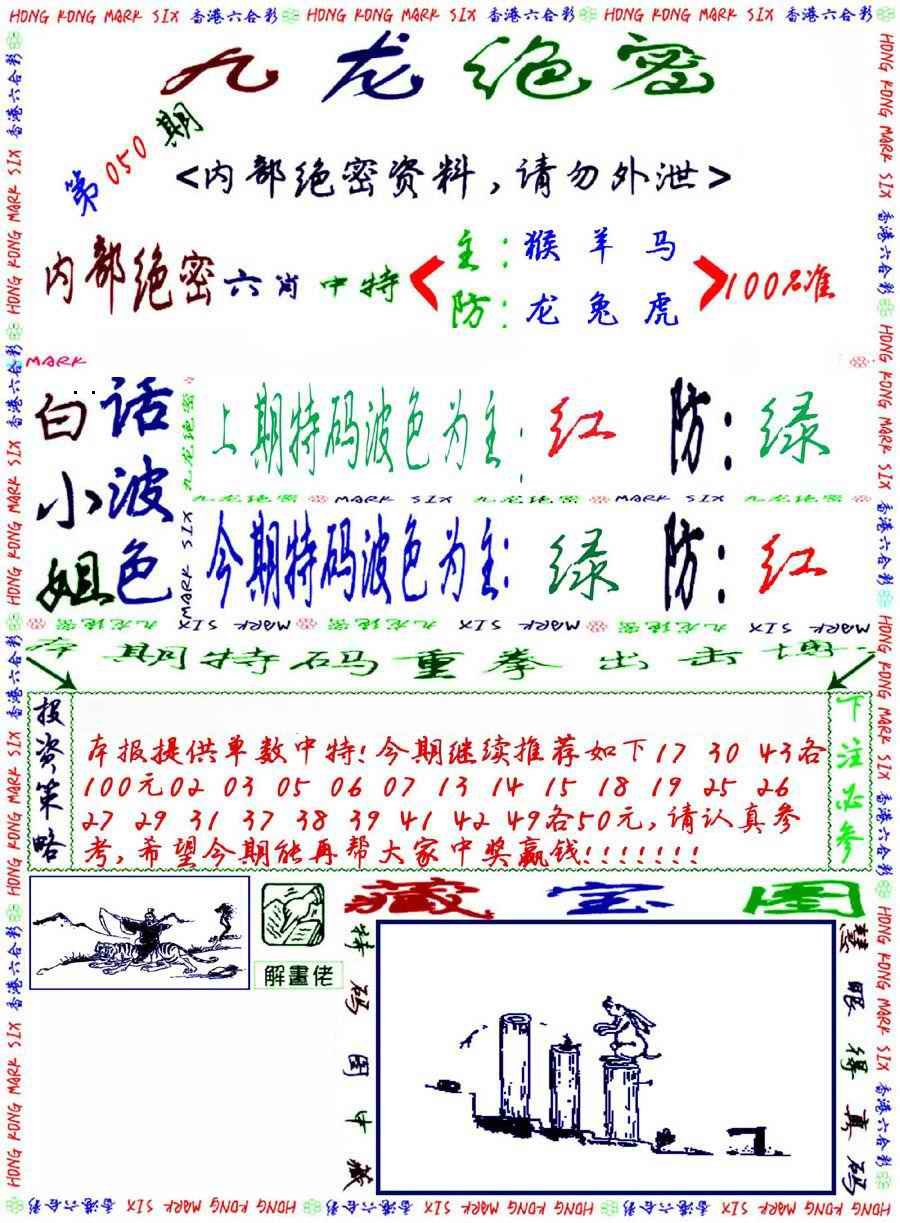 HONG KONG MARK SIX 香港六合彩 HONG KONG MARK SIX 香港六合彩 HONG KONG MARK SIX 香港六合彩
九龙绝密
第050期
<内部绝密资料,请勿外泄>
内部绝密六肖中特
主:猴 羊 马
防:龙 兔 虎
100%准
MARK
白话小波姐色
上期特码波色为主:红 防:绿
九龙绝密 MARK SIX 九龙绝密 MARK SIX 九龙绝密
今期特码波色为主:绿 防:红
九龙绝密 MARK SIX 九龙绝密 MARK SIX 九龙绝密 MARK SIX
本期特码重拳出击博
投资策略
本报提供单数中特!今期继续推荐如下17 30 43各
100元02 03 05 06 07 13 14 15 18 19 25 26
27 29 31 37 38 39 41 42 49各50元,请认真参
考,希望今期能再帮大家中奖赢钱!!!!!!!
下注必参
解畫佬
藏宝图
特码图中藏
慧眼得真码
HONG KONG MARK SIX 香港六合彩 HONG KONG MARK SIX 香港六合彩 HONG KONG MARK SIX 香港六合彩